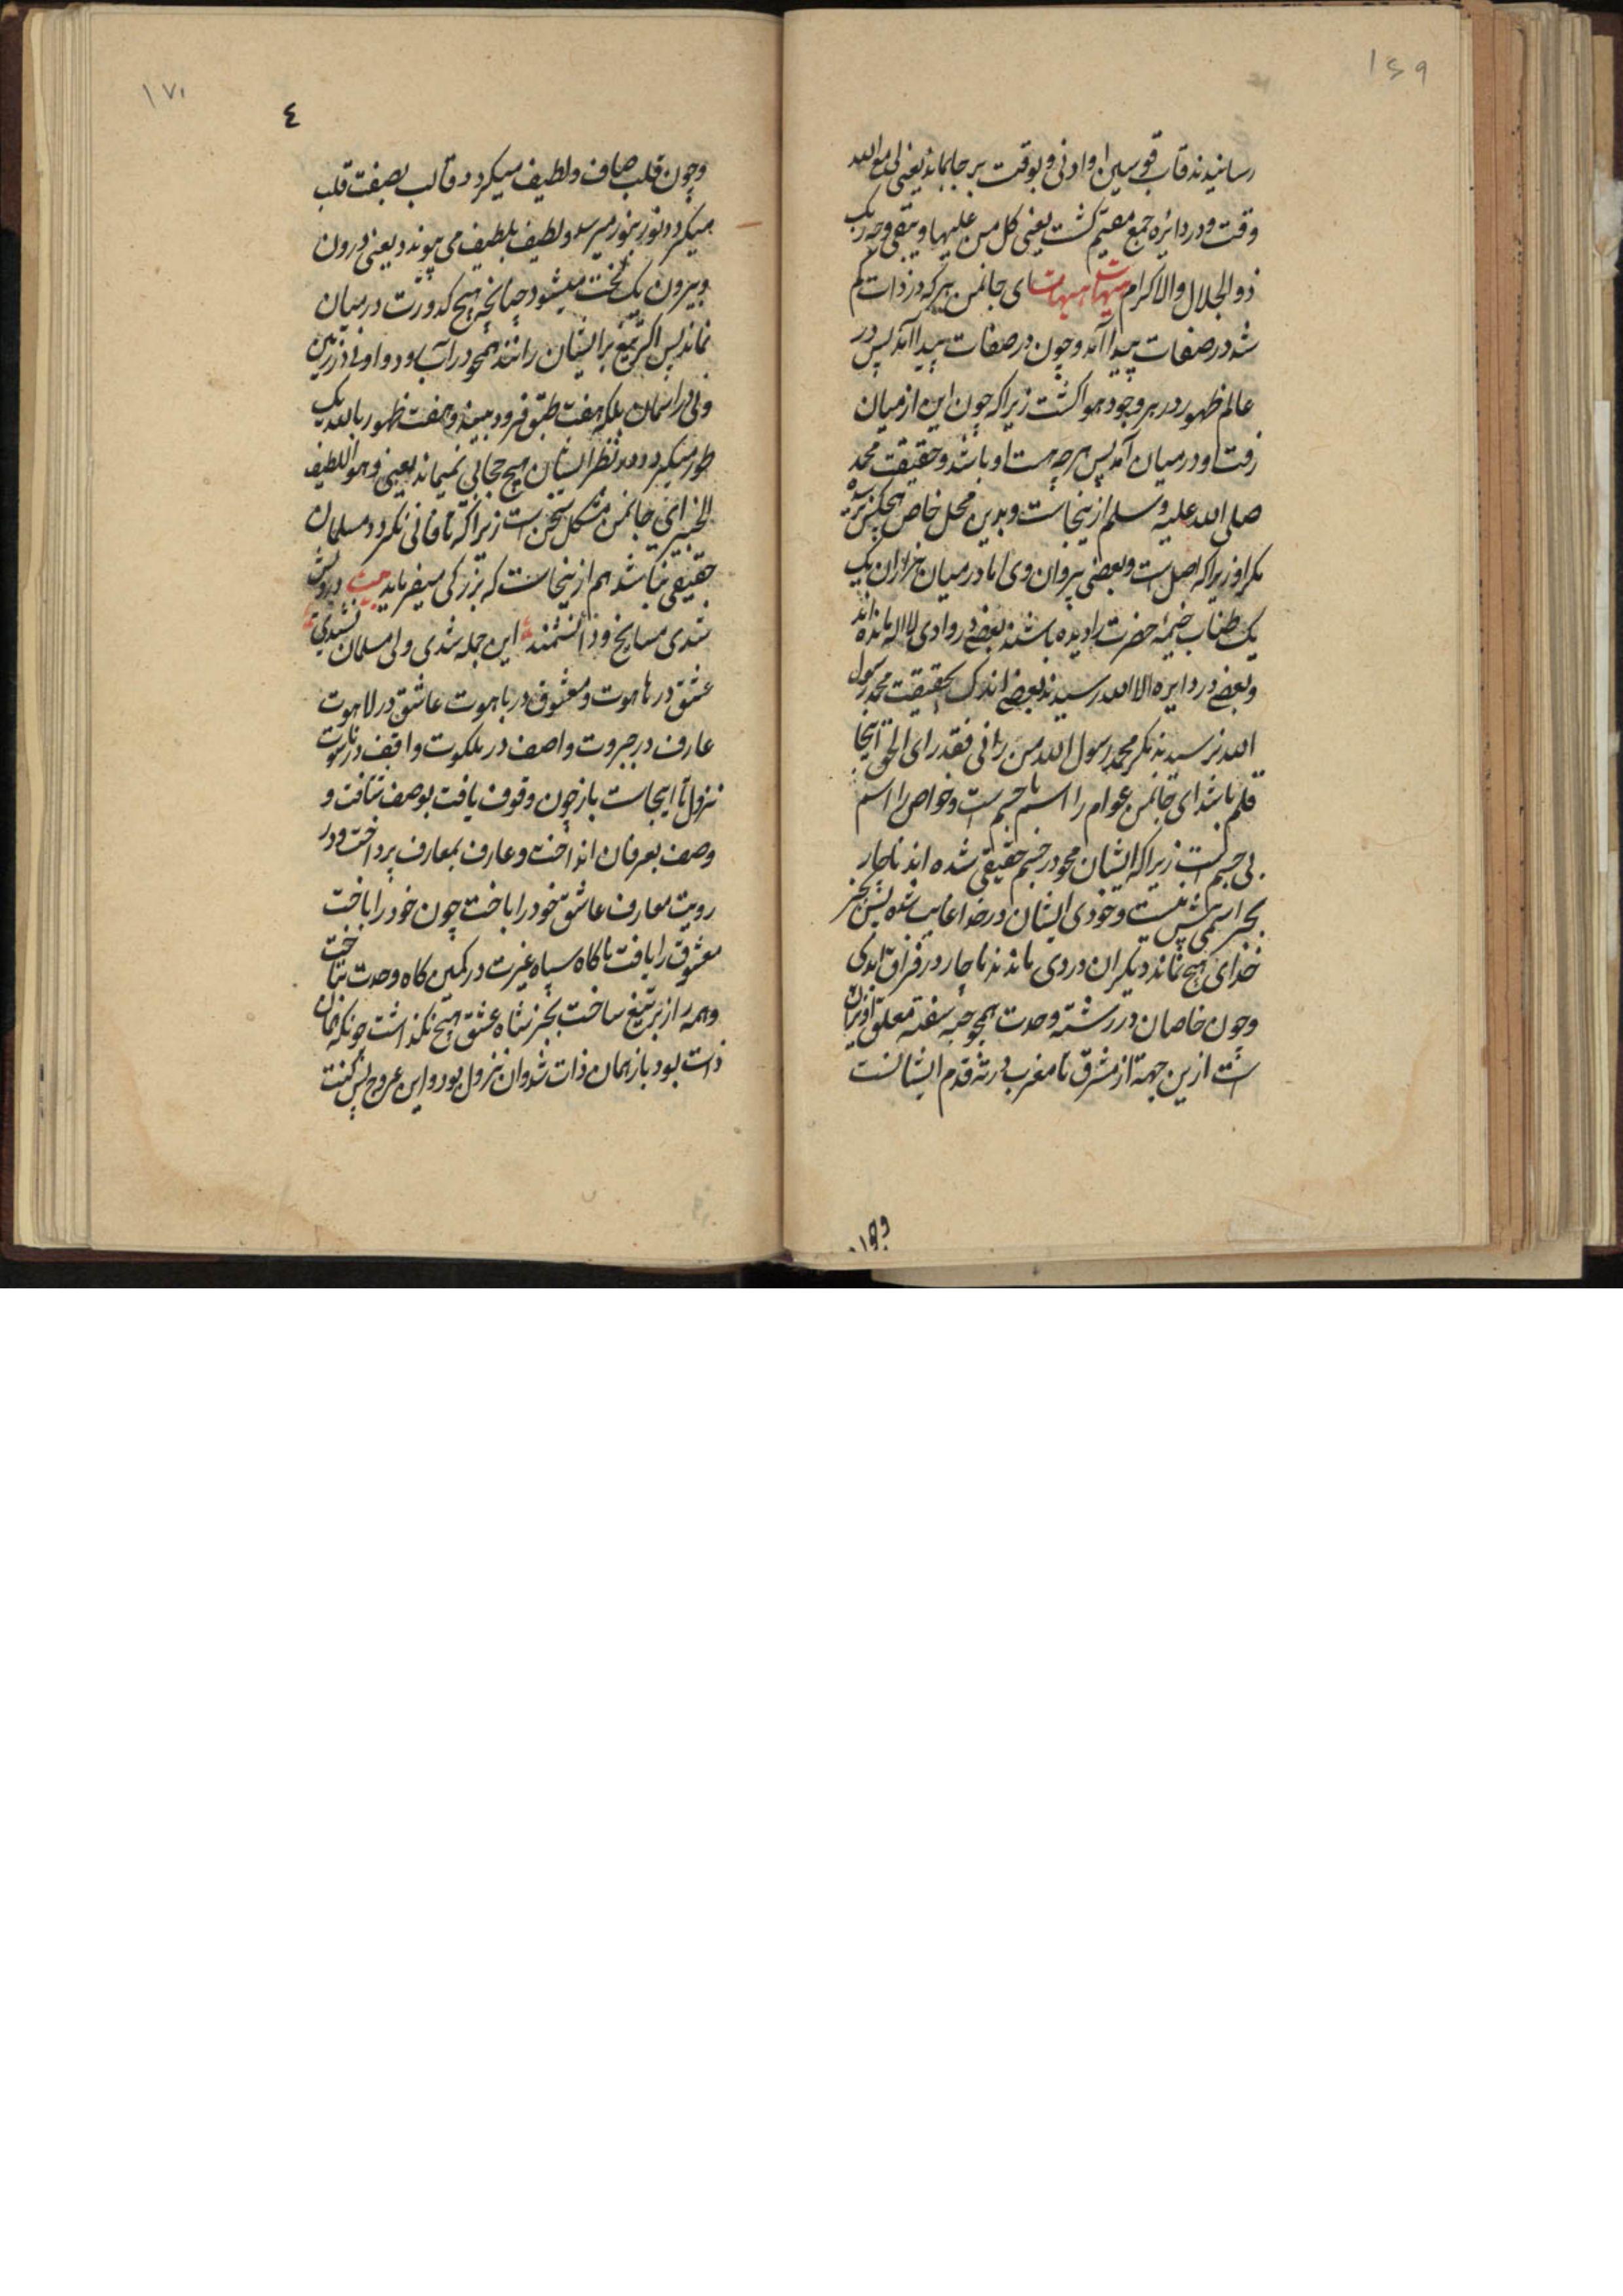 ۱۶۹
رسانیدند قاب قوسین او ادنی و بوقت بر جا بماند یعنی لی مع الله
وقت و در دائره جمع مقیم کشت یعنی کل من علیها و یبقی وجه ربک
ذو الجلال والاکرام هیهات هیهات ای جانمن هر که در ذات کم
شد در صفات پیدا آمد و چون در صفات پیدا آمد پس در
عالم ظهور در هر وجود هوا کشت زیرا که چون این از میان
رفت او در میان آمد پس هر چه هست او باشد و حقیقت محمد
صلی الله علیه و سلم ازینجاست و بدین محل خاص هیچکس نرسیده
مکر او زیرا که اصل است و بعضی پیروان وی اما در میان هزاران یک
یک طناب خیمه حضرت را دیده باشند بعضی در وادی لا اله مانده اند
و بعضی در دایره الا الله رسیدند بعضی اندک بحقیقت محمد رسول
الله نرسیدند مکر محمد رسول الله من رانی فقد رای الحق اینجا
قلم باشد ای جانمن عوام را اسم با جسم است و خواص را اسم
بی جسم است زیرا که ایشان محو در جسم حقیقی شده اند ناچار
بجز اسمی بیش نیست و خودی ایشان در خدا غایب شده پس بجز
خدای هیچ نماند دیکران در دی ماندند ناچار در فراق اندکی
و چون خاصان در رشته وحدت همچو حبه سفته معلق اویزان
است ازین جهة از مشرق تا مغرب در ته قدم ایشانست
وچون
۱۷۰
٤
و چون قلب صاف و لطیف میکردد قالب بصفت قلب
میکردد و نور بنور میرسد و لطیف بلطیف می پیوندد یعنی درون
و بیرون یک لخت میشود چنانچه هیچ کدورت در میان
نماند پس اکر تیغ بر ایشان رانند همچو در آب رود و او لی در زمین
ولی در اسمان بلکه هفت طبق فرود بیند و هفت ظهور بالا یک
طور میکردد و در نظر ایشان هیچ حجابی نمیماند یعنی و هو اللطیف
الخبیر ای جانمن مشکل سخن است زیرا که تا فانی نکردد مسلمان
حقیقی نباشد هم ازینجاست که بزرکی میفرماید بیت درویش
شدی مسایخ و دانشمند این جمله شدی ولی مسلمان نشدی
عشق در هاهوت و معشوق در باهوت عاشق در لاهوت
عارف در جبروت واصف در ملکوت واقف در ناسوت
نزول تا اینجاست باز چون وقوف یافت بوصف شتافت و
وصف بعرفان انداخت و عارف بمعارف پرداخت و در
رویت معارف عاشق خود را باخت چون خود را باخت
معشوق را یافت ناکاه سپاه غیرت در کمین کاه وحدت بتاخت
و همه را زیر تیغ ساخت بجز شاه عشق هیچ نکذاشت چونکه همان
ذات بود باز همان ذات شد و ان نزول بود و این عروج پس کنت